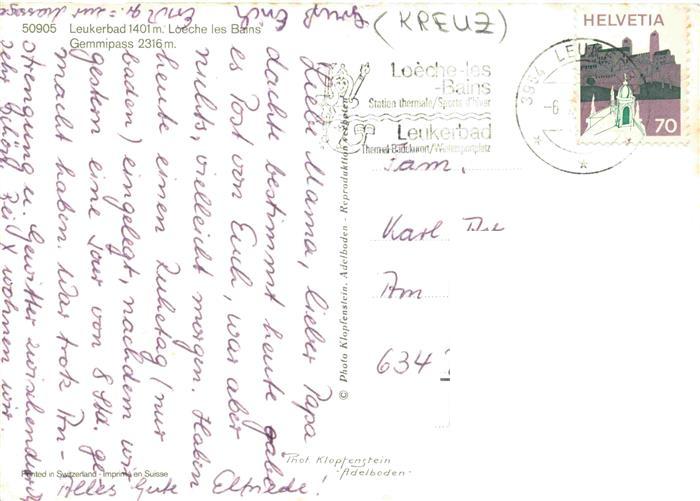 50905 Leukerbad 1401 m. Loèche les Bains
Gemmipass 2316 m.
(KREUZ)
HELVETIA
70
3954 LEU
-6.
Loèche-les
-Bains
Station thermale/Sports d'hiver
Leukerbad
Thermal-Badekurort/Wintersportplatz
Liebe Mama, lieber Papa
dachte bestimmt heute gäbe
es Post von Euch, war aber
nichts vielleicht morgen. Haben
heute einen Ruhetag (nur
baden) eingelegt, nachdem wir
gestern eine Tour von 8 Std. ge
macht haben. War trotz An-
strengung u. Gewitter zwischendurch
sehr schön. Bei X wohnen wir.
Alles Gute Elfriede!
Gruß Erich
© Photo Klopfenstein, Adelboden - Reproduktion verboten
Fam.
Karl
Am
634
Phot. Klopfenstein
-Adelboden-
Printed in Switzerland - Imprimé en Suisse